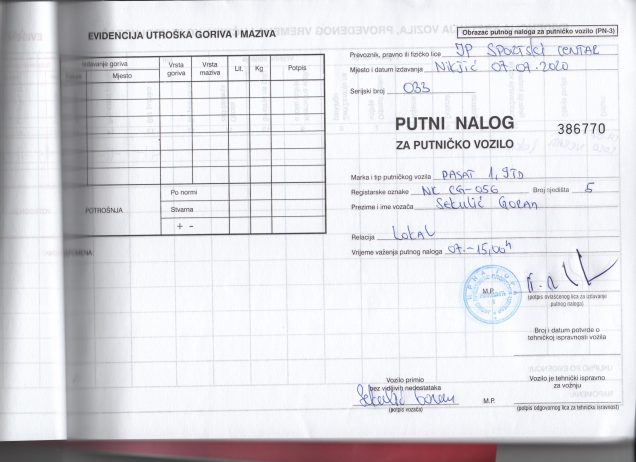 EVIDENCIJA UTROŠKA GORIVA I MAZIVA
Izdavanje goriva
Mjesto
Vrsta goriva
Vrsta maziva
Lit.
Kg
Potpis
POTROŠNJA
Po normi
Stvarna
+ -
Obrazac putnog naloga za putničko vozilo (PN-3)
Prevoznik, pravno ili fizičko lice JP SPORTSKI CENTAR
Mjesto i datum izdavanja Nikšić 07.07.2020
Serijski broj 033
PUTNI NALOG
386770
ZA PUTNIČKO VOZILO
Marka i tip putničkog vozila PASAT 1,9TD
Registarske oznake NK CG-056 Broj sjedišta 5
Prezime i ime vozača Sekulić Goran
Relacija LOKAL
Vrijeme važenja putnog naloga 07-15,00h
M.P.
(potpis ovlašćenog lica za izdavanje
putnog naloga)
Broj i datum potvrde o
tehničkoj ispravnosti vozila
Vozilo primio
bez vidljivih nedostataka
Sekulić Goran
(potpis vozača)
M.P.
Vozilo je tehnički ispravno
za vožnju
(potpis odgovornog lica za tehničku ispravnost)